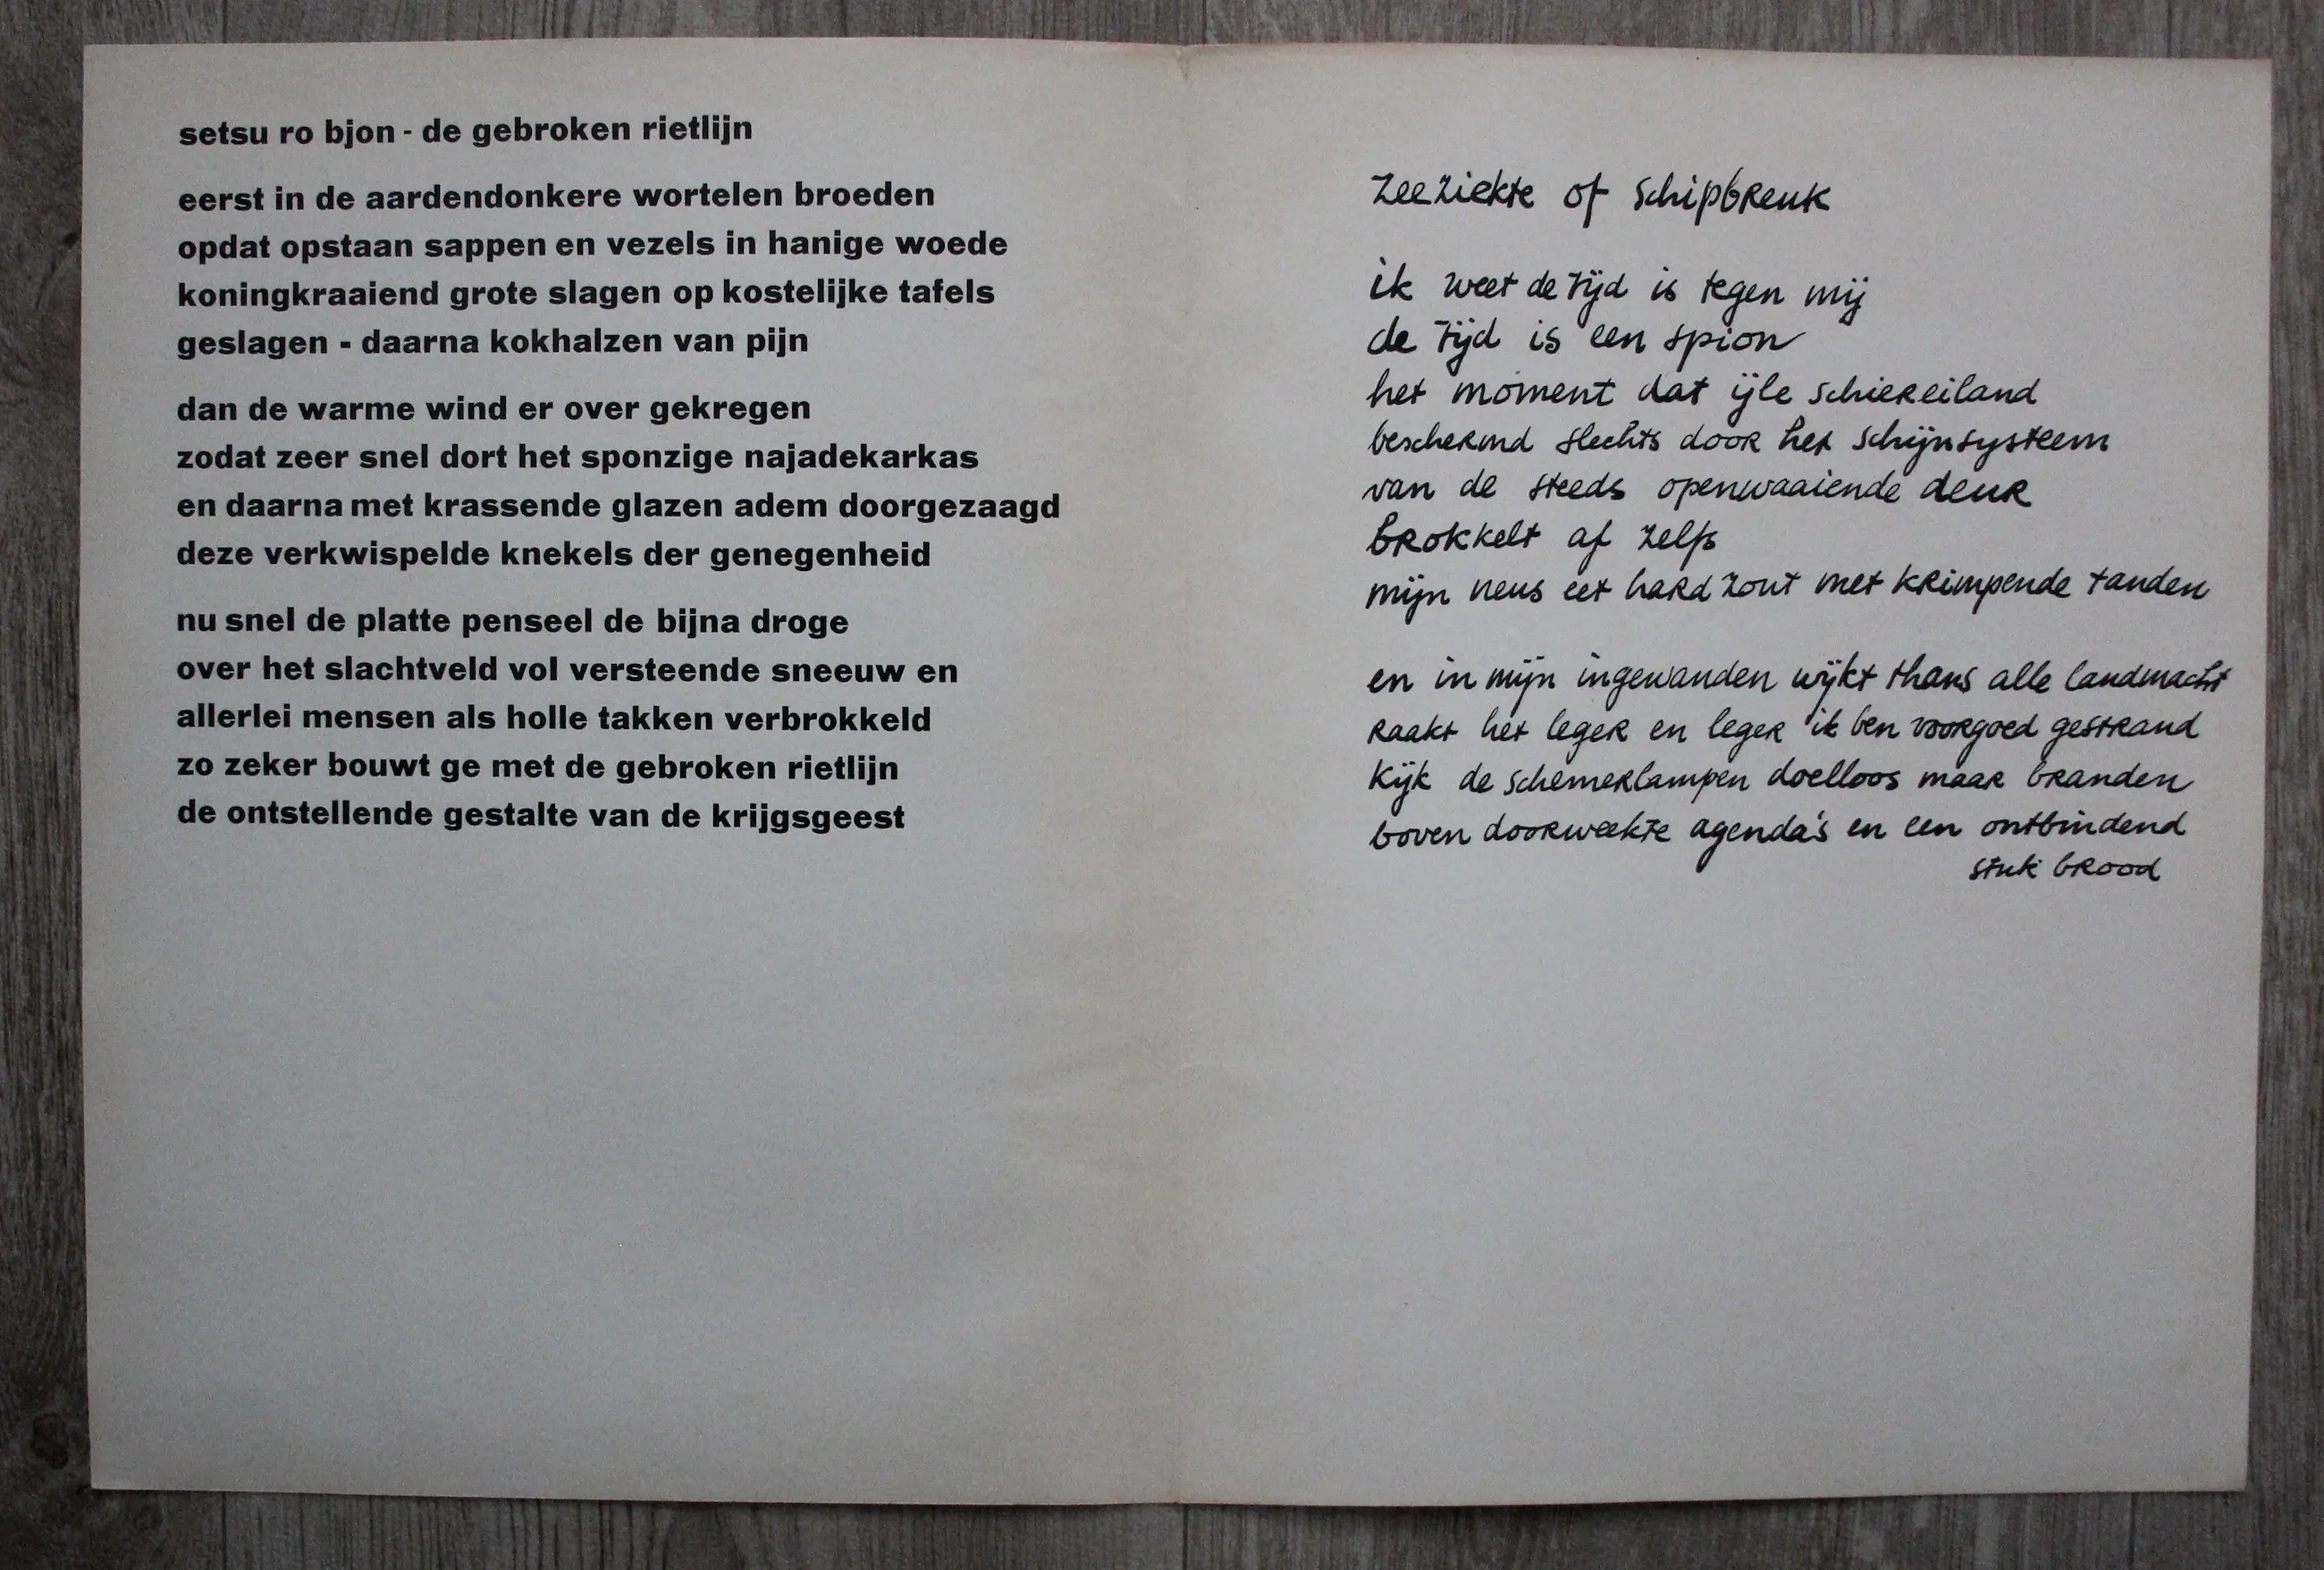 setsu ro bjon - de gebroken rietlijn
eerst in de aardendonkere wortelen broeden
opdat opstaan sappen en vezels in hanige woede
koningkraaiend grote slagen op kostelijke tafels
geslagen - daarna kokhalzen van pijn
dan de warme wind er over gekregen
zodat zeer snel dort het sponzige najadekarkas
en daarna met krassende glazen adem doorgezaagd
deze verkwispelde knekels der genegenheid
nu snel de platte penseel de bijna droge
over het slachtveld vol versteende sneeuw en
allerlei mensen als holle takken verbrokkeld
zo zeker bouwt ge met de gebroken rietlijn
de ontstellende gestalte van de krijgsgeest
zeeziekte of schipbreuk
ik weet de tijd is tegen mij
de tijd is een spion
het moment dat ijle schiereiland
beschermd slechts door het schijnsysteem
van de steeds openwaaiende deur
brokkelt af zelfs
mijn neus eet hard zout met krimpende tanden
en in mijn ingewanden wijkt thans alle landmacht
raakt het leger en leger ik ben voorgoed gestrand
kijk de schemerlampen doelloos maar branden
boven doorweekte agenda's en een ontbindend
stuk brood